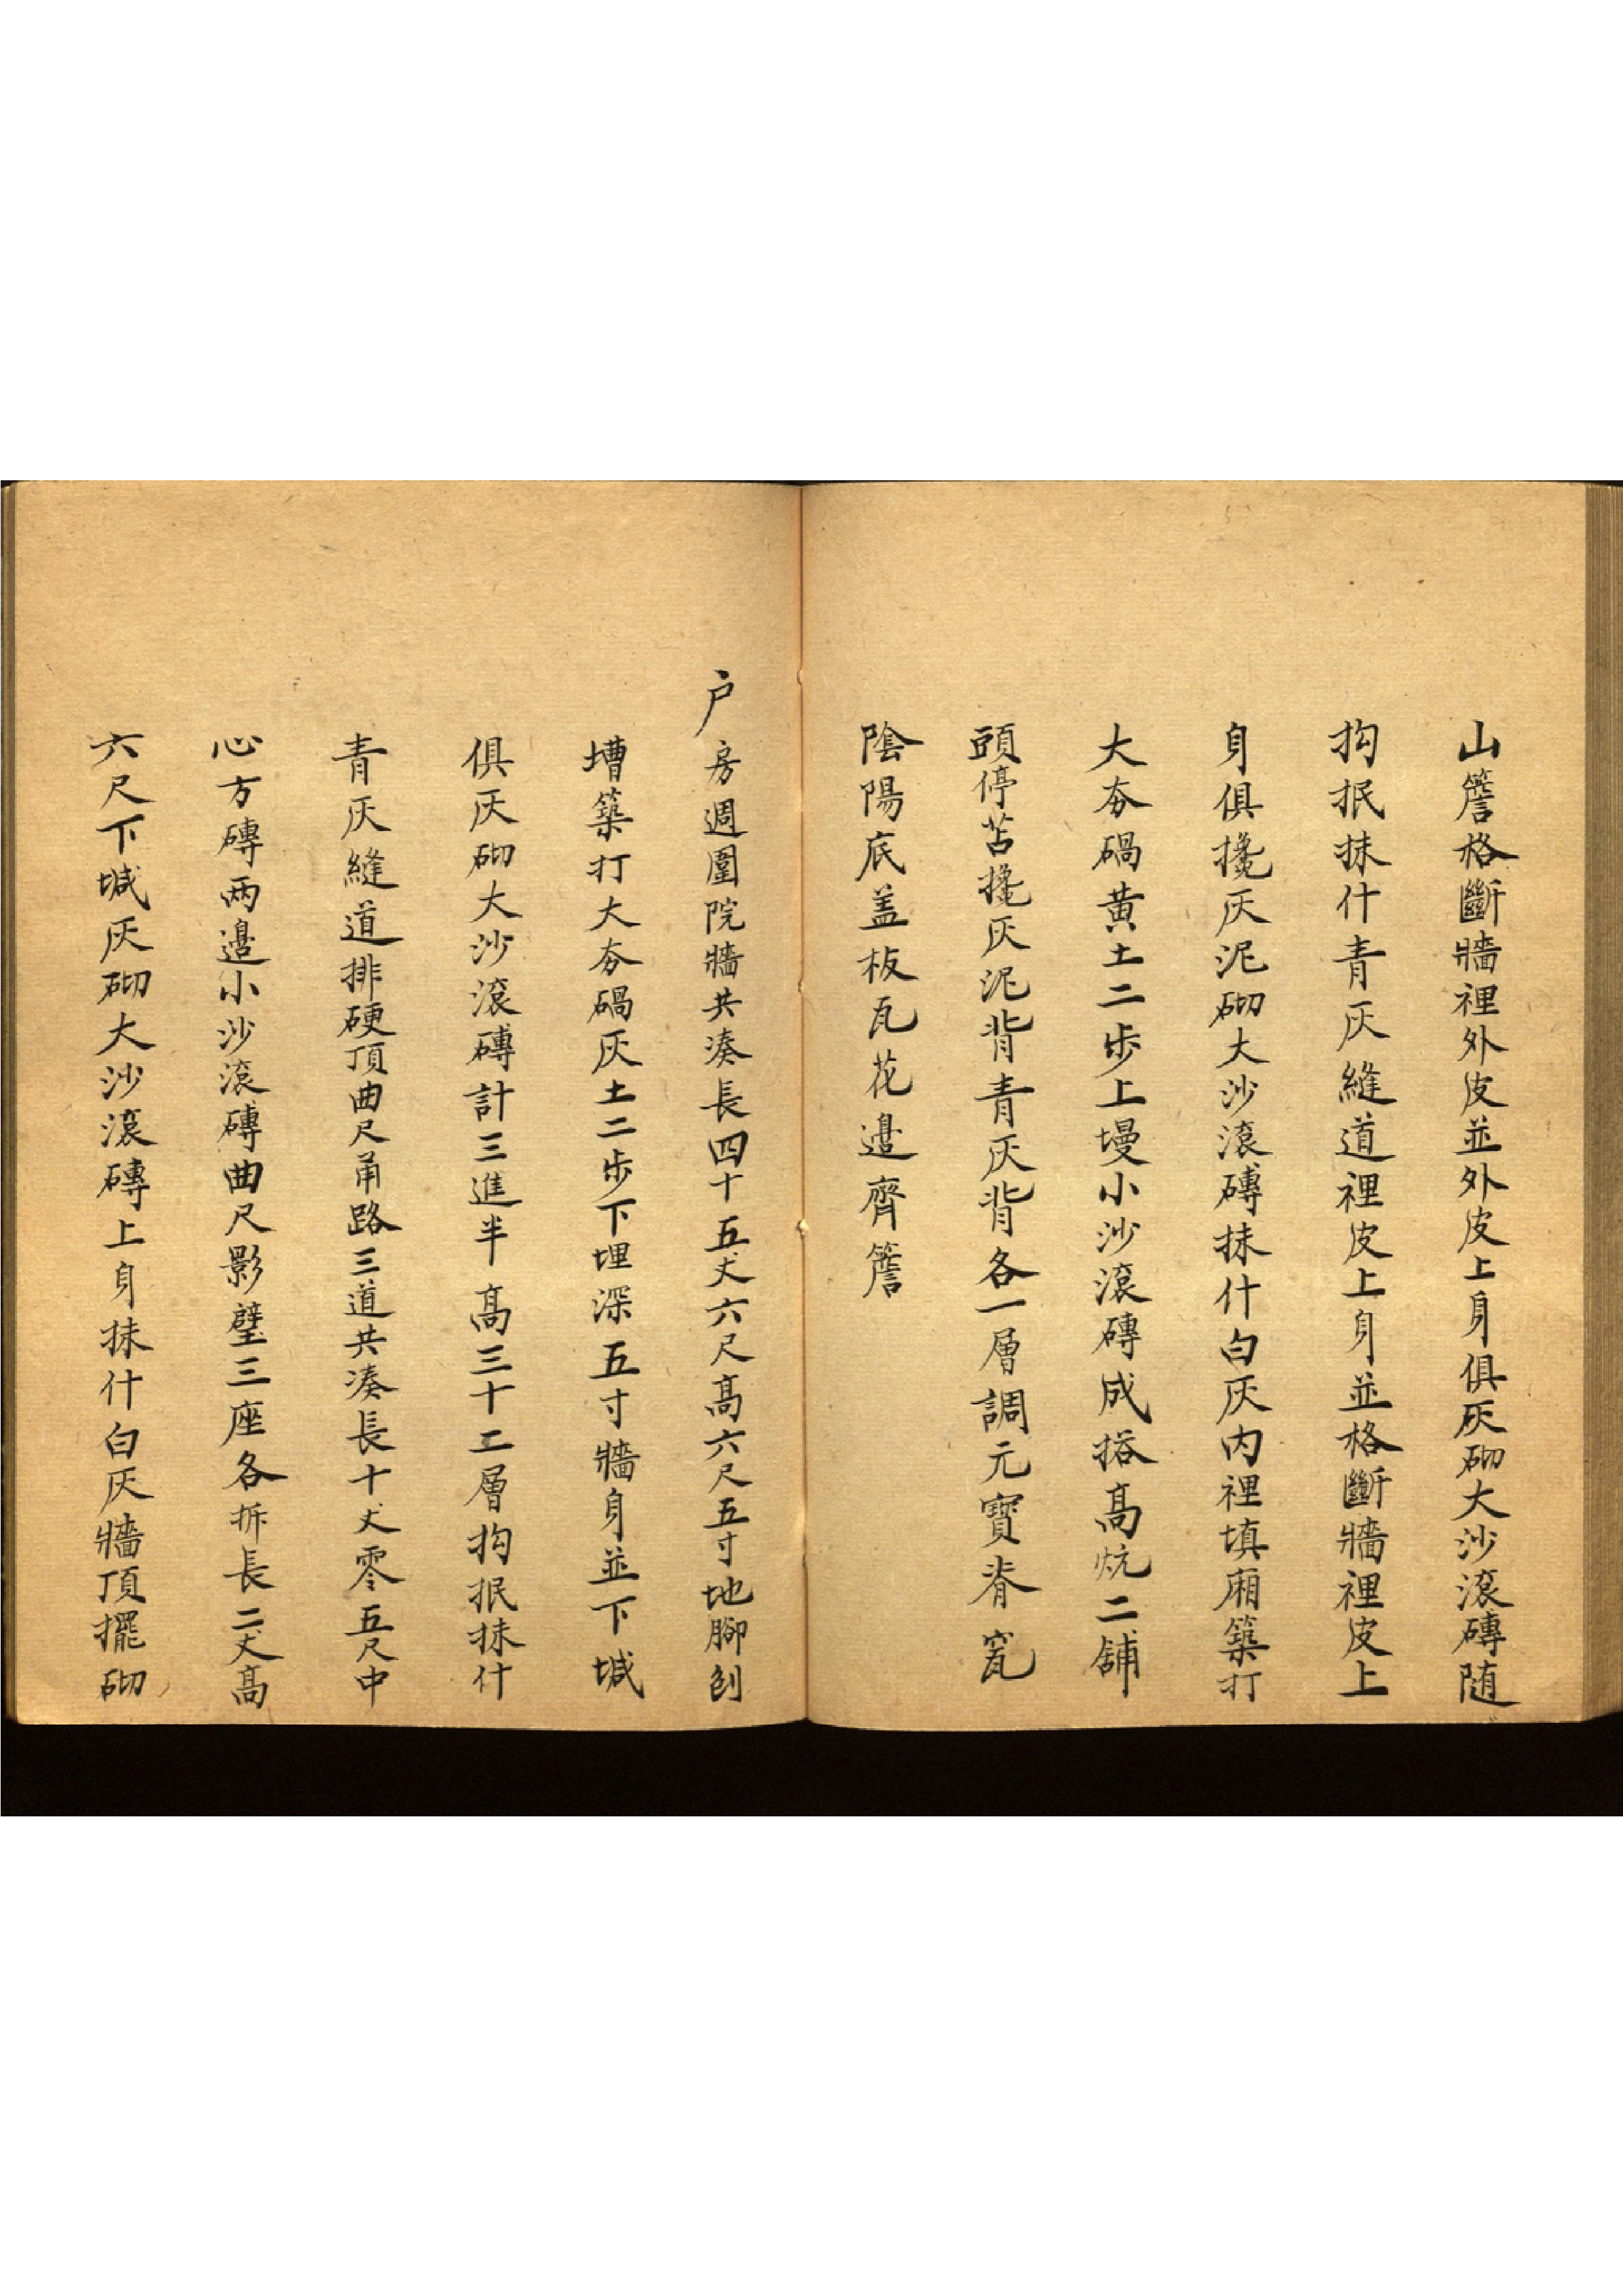 山簷格斷牆裡外皮並外皮上身俱灰砌大沙滾磚随
抅抿抹什青灰縫道裡皮上身並格斷牆裡皮上
身俱攙灰泥砌大沙滾磚抹什白灰内裡填廂築打
大夯碢黄土二步上墁小沙滾磚成搭高炕二舖
頭停苫攙灰泥背青灰背各一層調元寳脊窊
陰陽底盖板瓦花邊齊簷
户房週圍院牆共凑長四十五丈六尺高六尺五寸地腳刨
墆築打大夯碢灰土二步下埋深五寸牆身並下堿
俱灰砌大沙滾磚計三進半高三十工層抅抿抹什
青灰縫道排硬頂曲尺甬路三道共凑長十丈零五尺中
心方磚兩邊小沙滾磚曲尺影壁三座各拆長二丈高
六尺下堿灰砌大沙滾磚上身抹什白灰牆頂擺砌